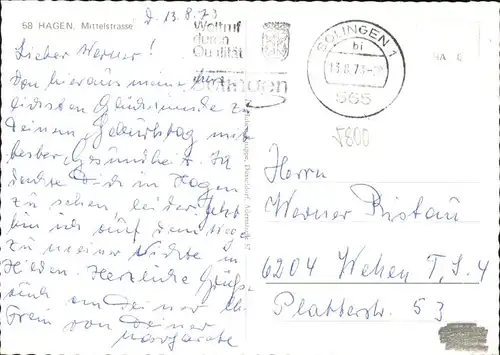 58 HAGEN, Mittelstrasse
d. 13.8.73
Weltruf
durch
Qualität
Solingen
SOLINGEN 1
bi
13.8.73
565
Lieber Werner!
Von hieraus meine herz
lichsten Glückwünsche zu
Deinem Geburtstag mit
bester Gesundheit. Ich
dachte Dich in Hagen
zu sehen leider. Jetzt
bin ich auf dem Wege
zu meiner Nichte in
Herzliche Grüße
auch an Deine
Frau von Deiner
Margarete
Herrn
Werner Ristau
6204 Wehen T.S. 4
Platterstr. 53